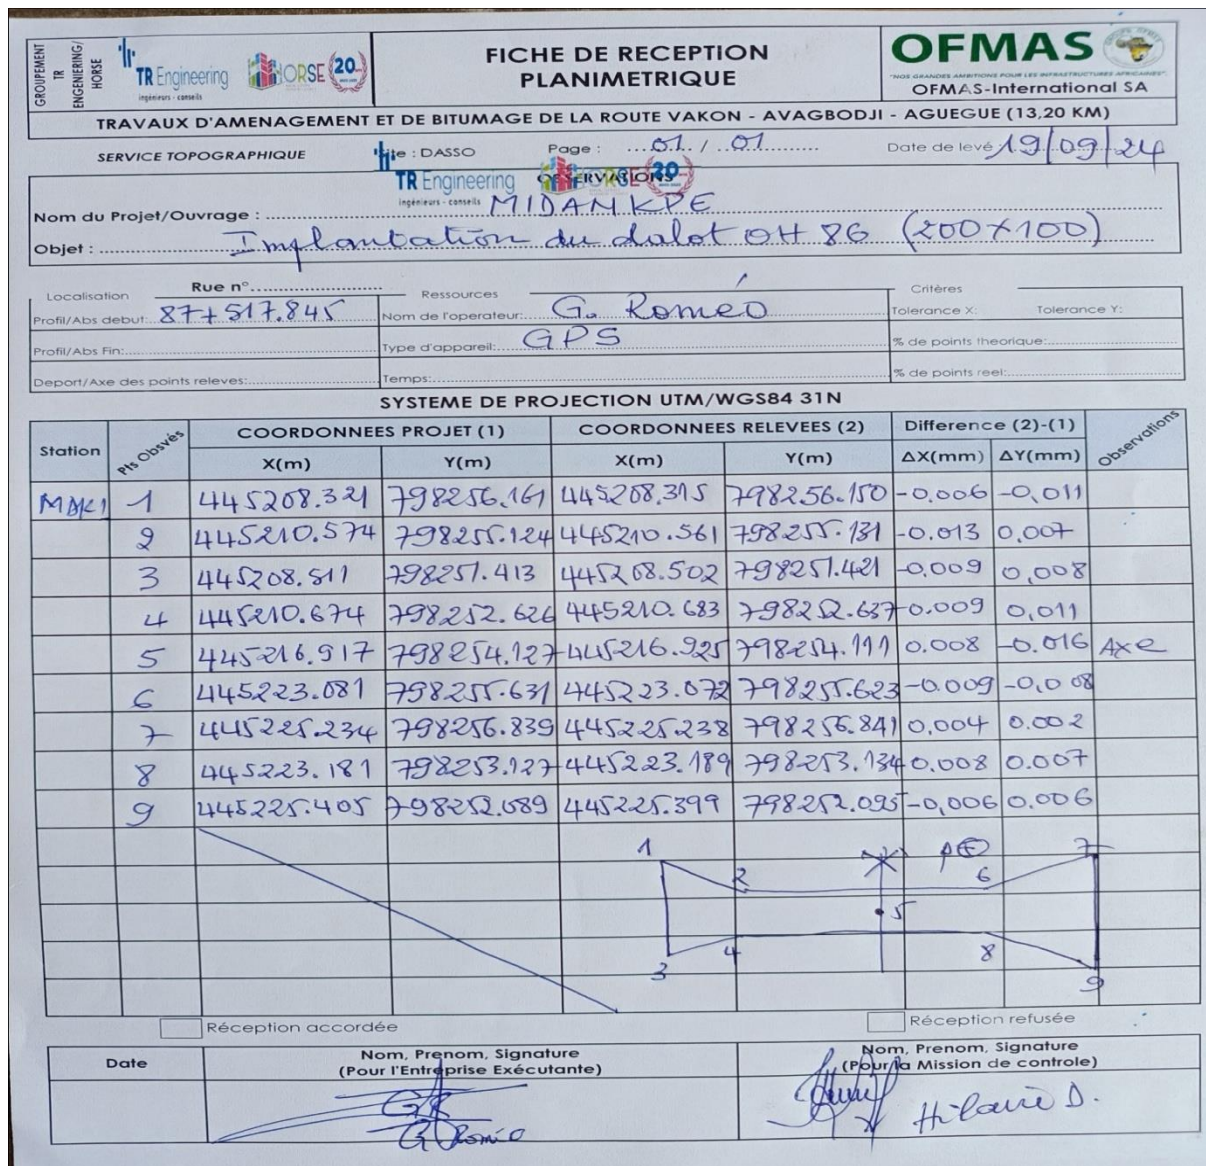 GROUPEMENT TR ENGENIERING/ HORSE
TR Engineering
ingénieurs - conseils
HORSE 20
FICHE DE RECEPTION PLANIMETRIQUE
OFMAS
"NOS GRANDES AMBITIONS POUR LES INFRASTRUCTURES AFRICAINES".
OFMAS-International SA
TRAVAUX D'AMENAGEMENT ET DE BITUMAGE DE LA ROUTE VAKON - AVAGBODJI - AGUEGUE (13,20 KM)
SERVICE TOPOGRAPHIQUE : DASSO Page : 01 / 01 Date de levé 19/09/24
TR Engineering
ingénieurs - conseils
OBSERVATIONS
Nom du Projet/Ouvrage : MIDANKPE
Objet : Implantation du dalot OH 86 (200X100)
Localisation Rue n° Ressources Critères
Profil/Abs debut: 87+517.845 Nom de l'operateur: G. Roméo Tolerance X: Tolerance Y:
Profil/Abs Fin: Type d'appareil: GPS % de points theorique:
Deport/Axe des points releves: Temps: % de points reel:
SYSTEME DE PROJECTION UTM/WGS84 31N
Station Pts Obsvés COORDONNEES PROJET (1) COORDONNEES RELEVEES (2) Difference (2)-(1) Observations
X(m) Y(m) X(m) Y(m) ΔX(mm) ΔY(mm)
MDK1 1 445208.321 798256.161 445208.315 798256.150 -0.006 -0,011
2 445210.574 798255.124 445210.561 798255.131 -0.013 0,007
3 445208.511 798251.413 445208.502 798251.421 -0,009 0,008
4 445210.674 798252.626 445210.683 798252.637 0.009 0,011
5 445216.917 798254.127 445216.925 798254.111 0.008 -0.016 Axe
6 445223.081 798255.631 445223.072 798255.623 -0.009 -0,008
7 445225.234 798256.839 445225.238 798256.841 0,004 0.002
8 445223.181 798253.127 445223.189 798253.134 0.008 0.007
9 445225.405 798252.089 445225.399 798252.095 -0,006 0,006
1 7
2 6
5
3 4 8
9
Réception accordée Réception refusée
Date Nom, Prenom, Signature Nom, Prenom, Signature
(Pour l'Entreprise Exécutante) (Pour la Mission de controle)
G Roméo Hilaire D.